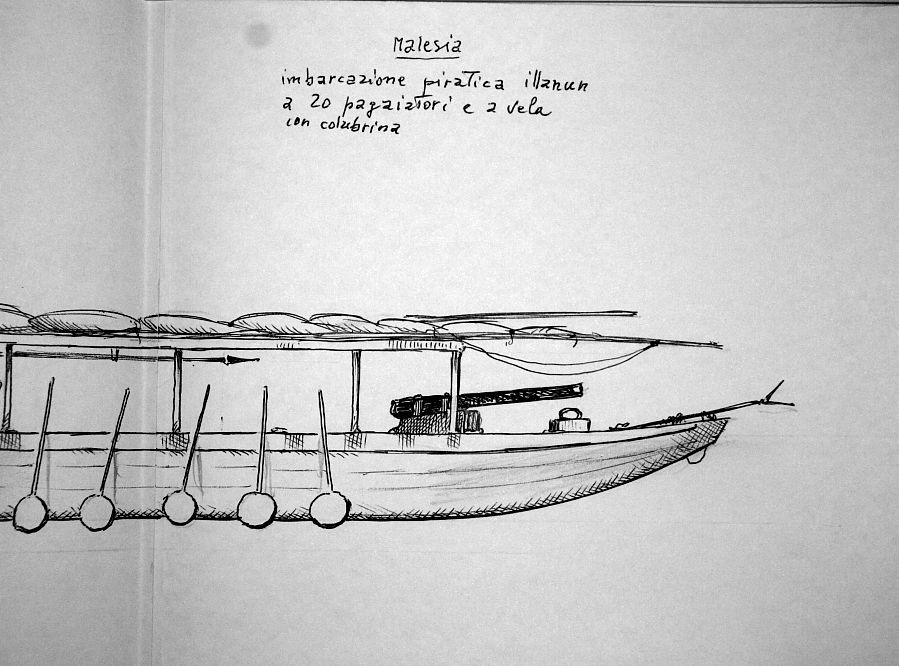 Malesia
imbarcazione piratica illanun
a 20 pagaiatori e a vela
con colubrina